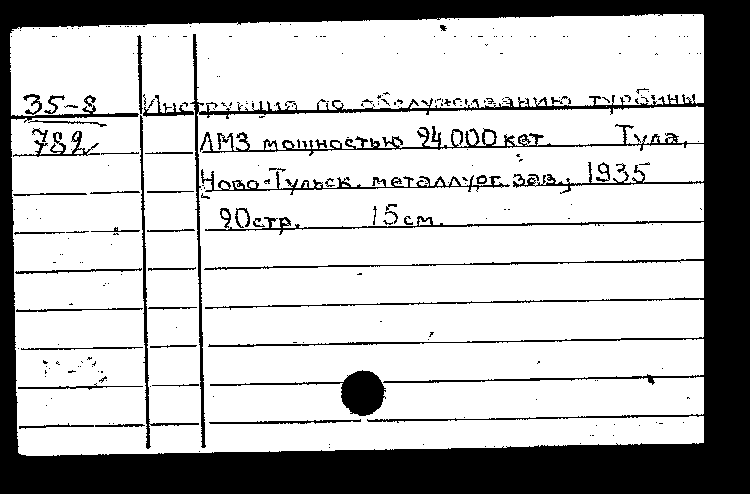 35-8 Инструкция по обслуживанию турбины
782 ЛМЗ мощностью 24.000 квт. Тула,
Ново-Тульск. металлург. зав., 1935
20 стр. 15 см.